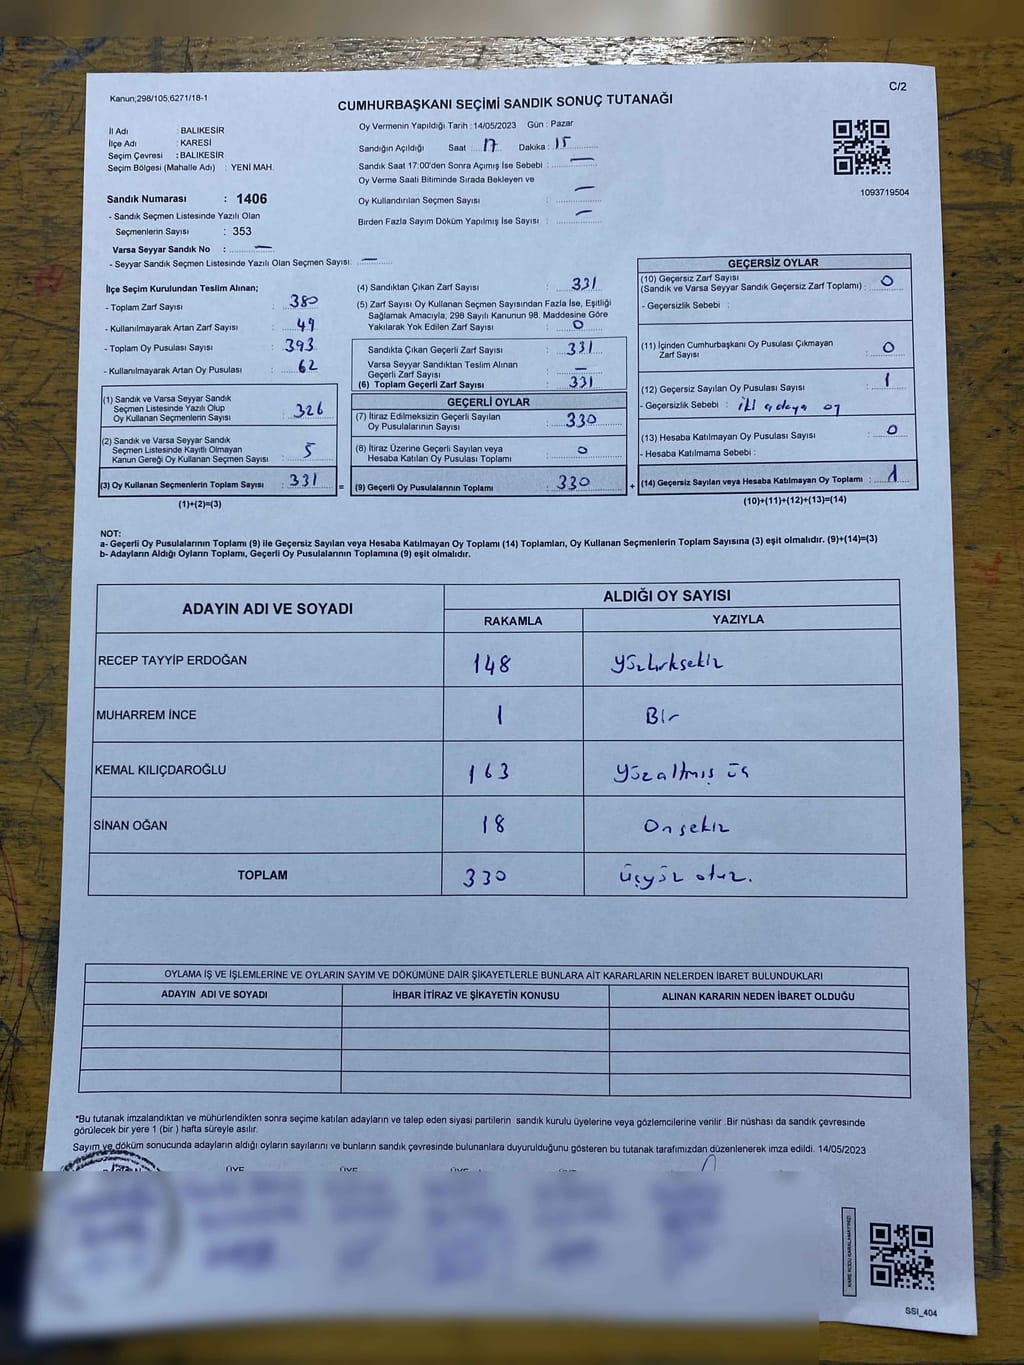 Kanun;298/105;6271/18-1
C/2
CUMHURBAŞKANI SEÇİMİ SANDIK SONUÇ TUTANAĞI
İl Adı : BALIKESİR
İlçe Adı : KARESİ
Seçim Çevresi : BALIKESİR
Seçim Bölgesi (Mahalle Adı) : YENİ MAH.
Sandık Numarası : 1406
- Sandık Seçmen Listesinde Yazılı Olan
Seçmenlerin Sayısı : 353
Varsa Seyyar Sandık No : —
- Seyyar Sandık Seçmen Listesinde Yazılı Olan Seçmen Sayısı: —
Oy Vermenin Yapıldığı Tarih : 14/05/2023 Gün : Pazar
Sandığın Açıldığı Saat : 17 Dakika : 15
Sandık Saat 17:00'den Sonra Açımış İse Sebebi : —
Oy Verme Saati Bitiminde Sırada Bekleyen ve
Oy Kullandırılan Seçmen Sayısı : —
Birden Fazla Sayım Döküm Yapılmış İse Sayısı : —
1093719504
İlçe Seçim Kurulundan Teslim Alınan;
- Toplam Zarf Sayısı : 380
- Kullanılmayarak Artan Zarf Sayısı : 49
- Toplam Oy Pusulası Sayısı : 393
- Kullanılmayarak Artan Oy Pusulası : 62
(1) Sandık ve Varsa Seyyar Sandık
Seçmen Listesinde Yazılı Olup
Oy Kullanan Seçmenlerin Sayısı : 326
(2) Sandık ve Varsa Seyyar Sandık
Seçmen Listesinde Kayıtlı Olmayan
Kanun Gereği Oy Kullanan Seçmen Sayısı : 5
(3) Oy Kullanan Seçmenlerin Toplam Sayısı : 331 =
(1)+(2)=(3)
(4) Sandıktan Çıkan Zarf Sayısı : 331
(5) Zarf Sayısı Oy Kullanan Seçmen Sayısından Fazla İse, Eşitliği
Sağlamak Amacıyla, 298 Sayılı Kanunun 98. Maddesine Göre
Yakılarak Yok Edilen Zarf Sayısı : 0
Sandıkta Çıkan Geçerli Zarf Sayısı : 331
Varsa Seyyar Sandıktan Teslim Alınan
Geçerli Zarf Sayısı : —
(6) Toplam Geçerli Zarf Sayısı : 331
GEÇERLİ OYLAR
(7) İtiraz Edilmeksizin Geçerli Sayılan
Oy Pusulalarının Sayısı : 330
(8) İtiraz Üzerine Geçerli Sayılan veya
Hesaba Katılan Oy Pusulası Toplamı : 0
(9) Geçerli Oy Pusulalarının Toplamı : 330 +
GEÇERSİZ OYLAR
(10) Geçersiz Zarf Sayısı
(Sandık ve Varsa Seyyar Sandık Geçersiz Zarf Toplamı) : 0
- Geçersizlik Sebebi :
(11) İçinden Cumhurbaşkanı Oy Pusulası Çıkmayan
Zarf Sayısı : 0
(12) Geçersiz Sayılan Oy Pusulası Sayısı : 1
- Geçersizlik Sebebi : iki adaya oy
(13) Hesaba Katılmayan Oy Pusulası Sayısı : 0
- Hesaba Katılmama Sebebi :
(14) Geçersiz Sayılan veya Hesaba Katılmayan Oy Toplamı : 1
(10)+(11)+(12)+(13)=(14)
NOT:
a- Geçerli Oy Pusulalarının Toplamı (9) ile Geçersiz Sayılan veya Hesaba Katılmayan Oy Toplamı (14) Toplamları, Oy Kullanan Seçmenlerin Toplam Sayısına (3) eşit olmalıdır. (9)+(14)=(3)
b- Adayların Aldığı Oyların Toplamı, Geçerli Oy Pusulalarının Toplamına (9) eşit olmalıdır.
ADAYIN ADI VE SOYADI
ALDIĞI OY SAYISI
RAKAMLA YAZIYLA
RECEP TAYYİP ERDOĞAN 148 Yüzkırksekiz
MUHARREM İNCE 1 Bir
KEMAL KILIÇDAROĞLU 163 Yüzaltmış üç
SİNAN OĞAN 18 Onsekiz
TOPLAM 330 üçyüz otuz.
OYLAMA İŞ VE İŞLEMLERİNE VE OYLARIN SAYIM VE DÖKÜMÜNE DAİR ŞİKAYETLERLE BUNLARA AİT KARARLARIN NELERDEN İBARET BULUNDUKLARI
ADAYIN ADI VE SOYADI İHBAR İTİRAZ VE ŞİKAYETİN KONUSU ALINAN KARARIN NEDEN İBARET OLDUĞU
*Bu tutanak imzalandıktan ve mühürlendikten sonra seçime katılan adayların ve talep eden siyasi partilerin sandık kurulu üyelerine veya gözlemcilerine verilir. Bir nüshası da sandık çevresinde
görülecek bir yere 1 (bir ) hafta süreyle asılır.
Sayım ve döküm sonucunda adayların aldığı oyların sayılarını ve bunların sandık çevresinde bulunanlara duyurulduğunu gösteren bu tutanak tarafımızdan düzenlenerek imza edildi. 14/05/2023
ÜYE ÜYE ÜYE
KARE KODU KARALAMAYINIZ!
SSI_404